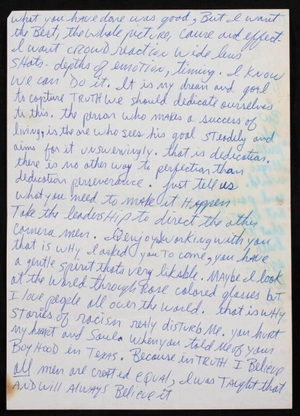 what you have done was good, But I want
the Best, the whole picture, cause and effect
I want crowd reaction wide lens
shots. depths of emotion, timing. I know
we can Do it. It is my dream and goal
to capture TRUTH we should dedicate ourselves
to this. the person who makes a success of
living, is the one who sees his goal steadely and
aims for it unswervingly. that is dedication.
there is no other way to perfection than
dedication perseverance. just tell us
what you need to make it Happen
Take the leadership to direct the other
camera men. I enjoy working with you
that is why I asked you to come, you have
a gentle spirit thats very likable. Maybe I look
at the world through rose colored glasses but
I love people all over the world. that is why
stories of racism realy disturb me. you hurt
my heart and Soul when you told me of your
Boy Hood in Texas. Because in TRUTH I Believe
all men are created equal, I was taught that
and will always Believe it